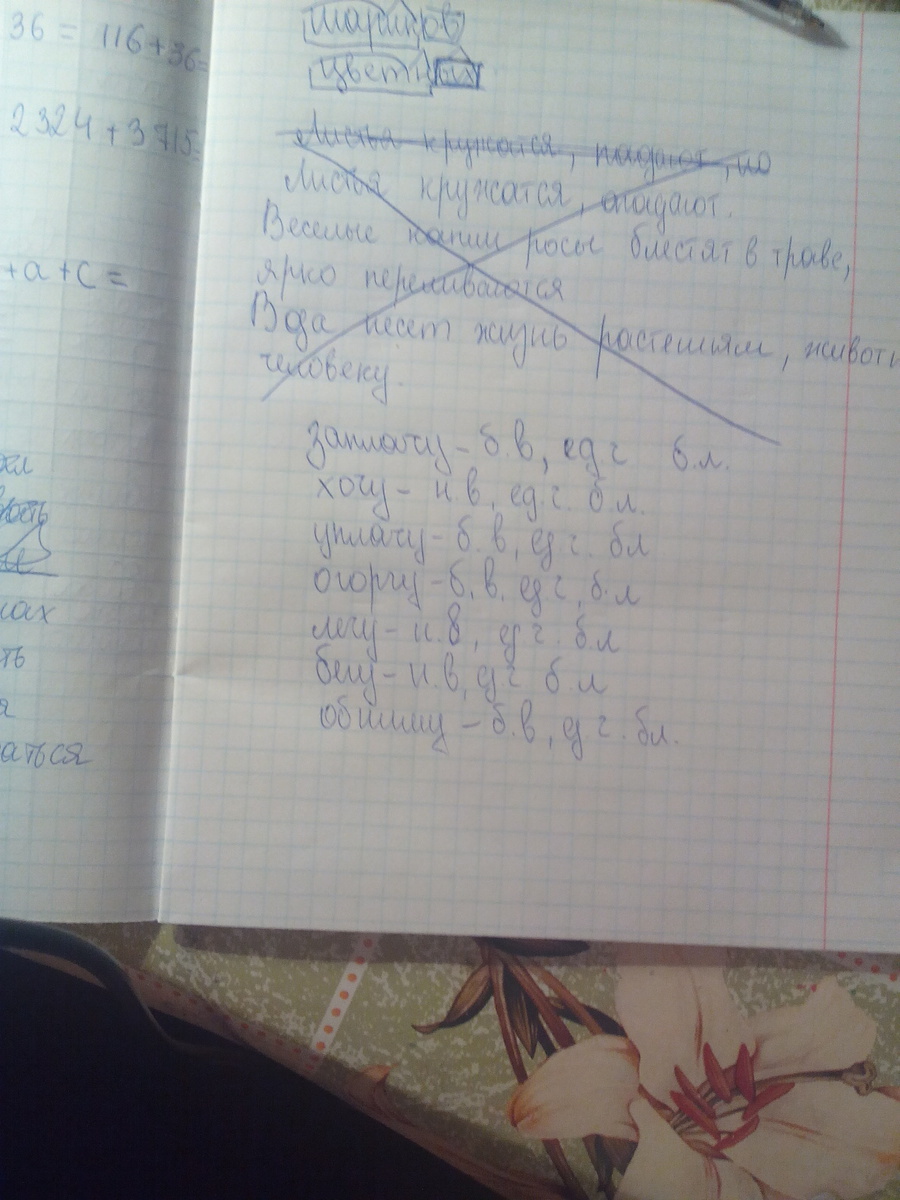 36 = 116+36=
2324+3715=
+а+с=
ость
ах
ть
я
аться
шариков
цветных
Листья кружатся, падают, но
Листья кружатся, опадают.
Веселые капли росы блестят в траве,
ярко переливаются
Вода несет жизнь растениям, животн
человеку.
заплачу – б.в, ед ч б.л.
хочу – н.в, ед.ч. б.л.
уплачу – б.в, ед ч. бл
огорчу – б.в. ед ч, б.л
лечу – н.в, ед ч. б.л
бегу – н.в, ед ч б.л
обниму – б.в, ед ч. бл.